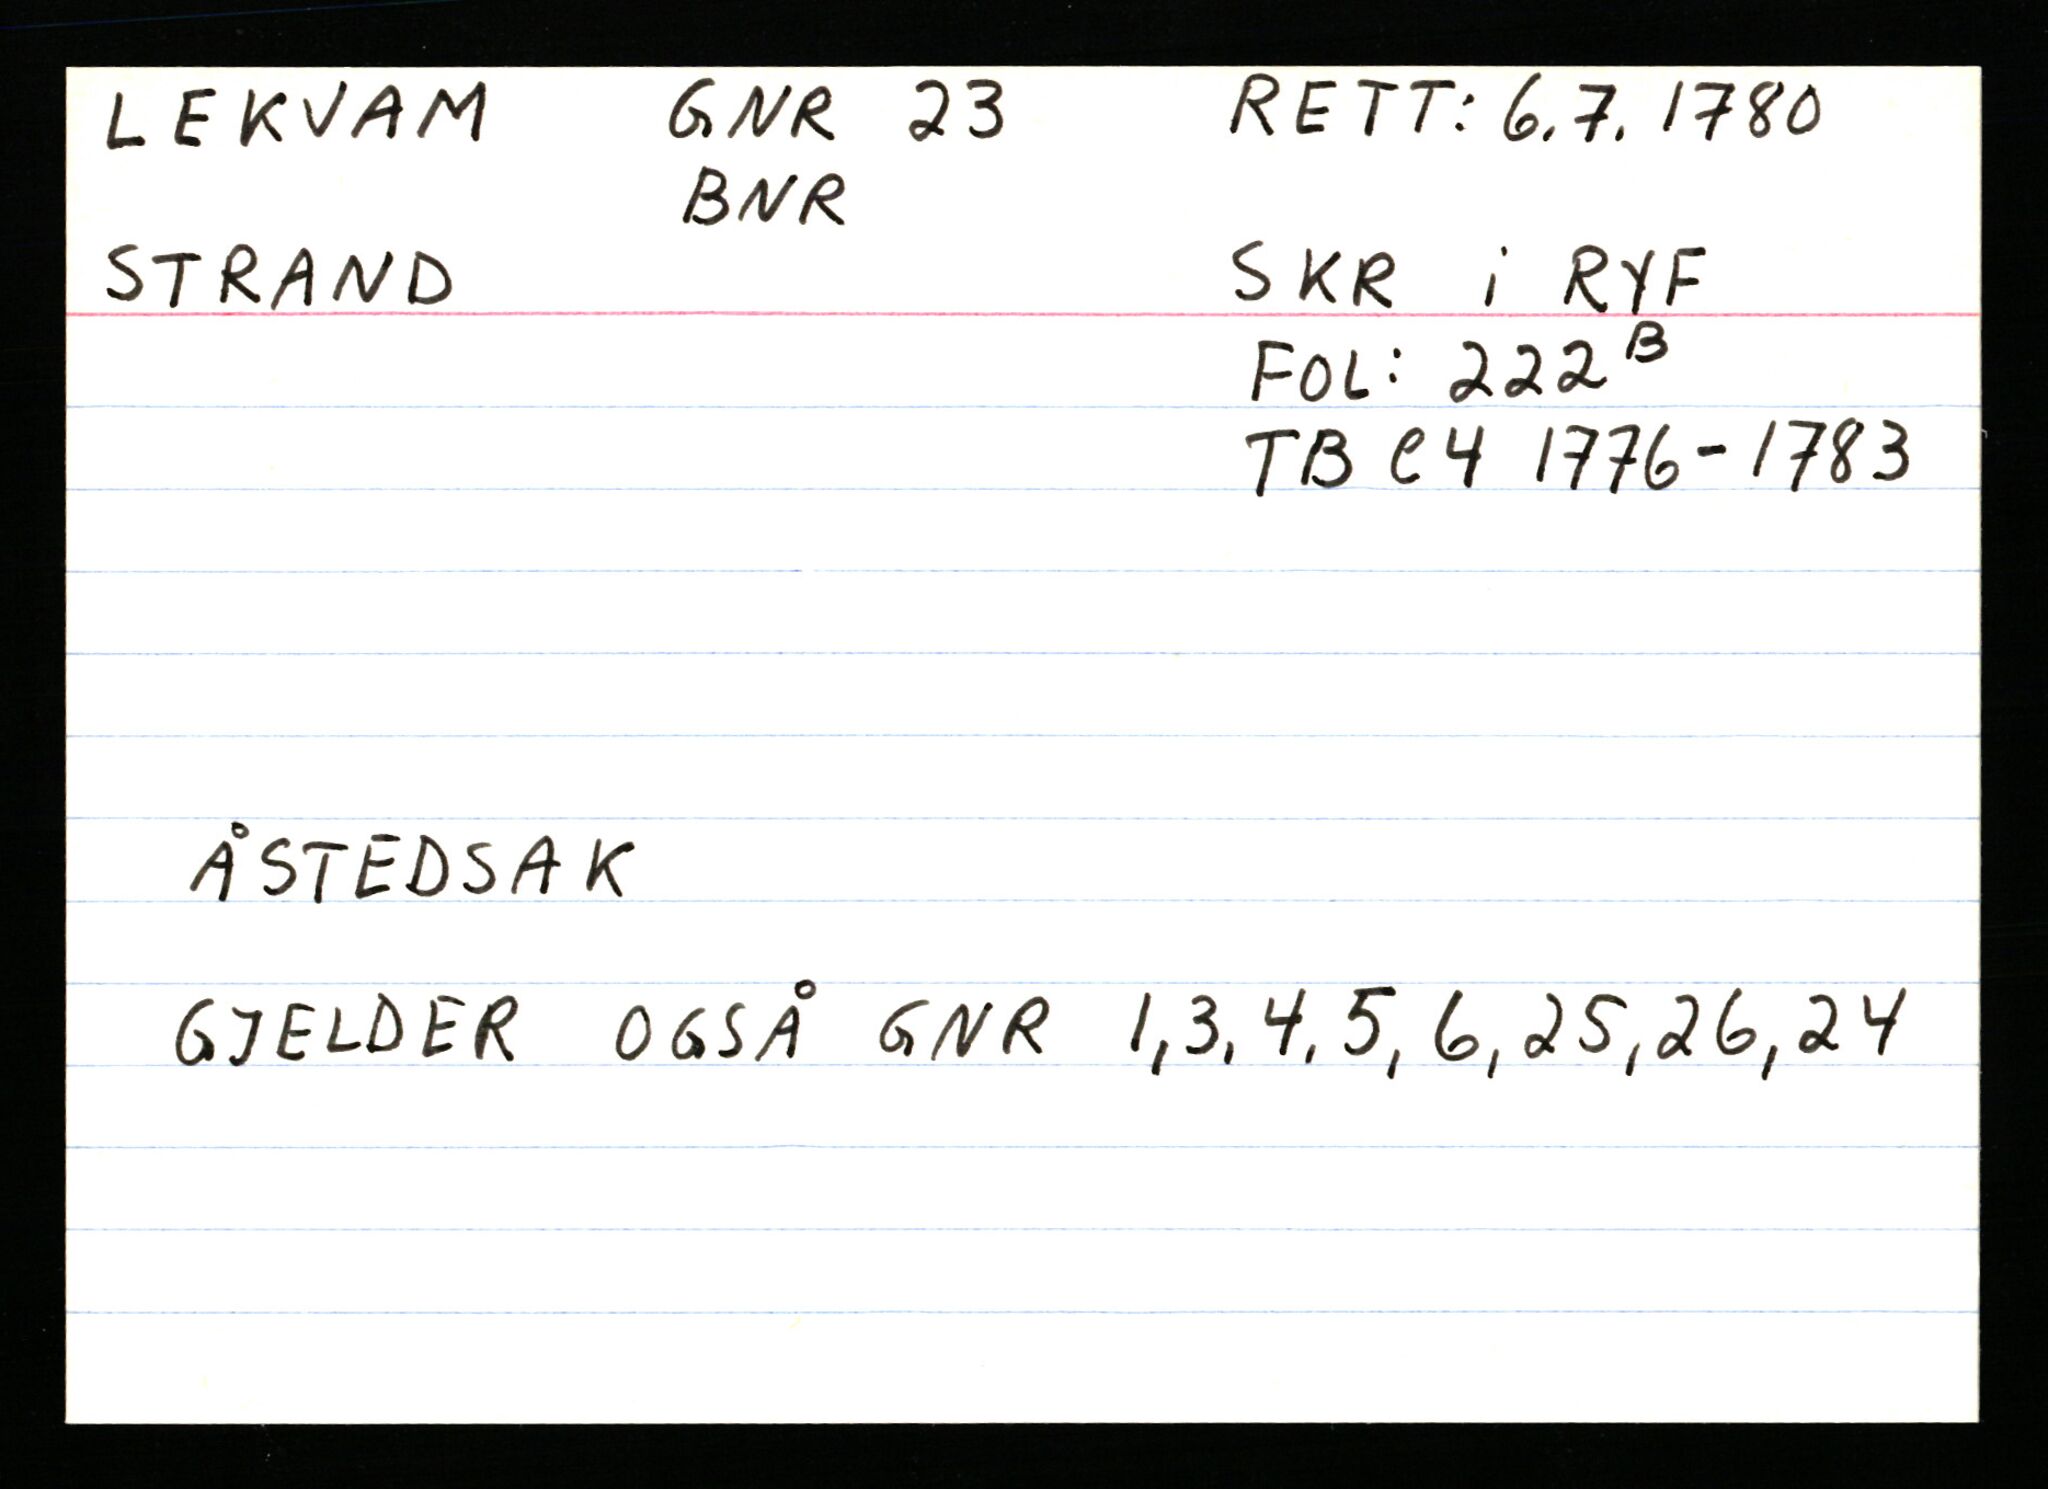 LEKVAM GNR 23 RETT: 6.7.1780
BNR
STRAND SKR i RYF
FOL: 222 B
TB C4 1776-1783
ÅSTEDSAK
GJELDER OGSÅ GNR 1,3,4,5,6,25,26,24